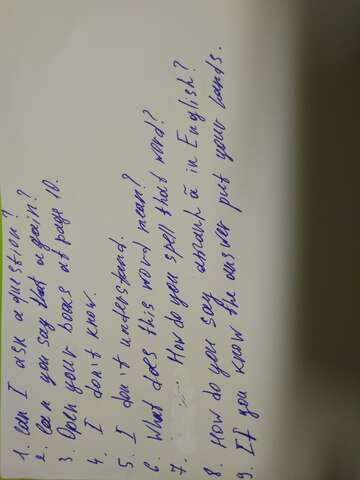 1. Can I ask a question?
2. Can you say that again?
3. Open your books at page 10.
4. I don't know.
5. I don't understand.
6. What does this word mean?
7. How do you spell that word?
8. How do you say in English?
9. If you know the answer put your hands.